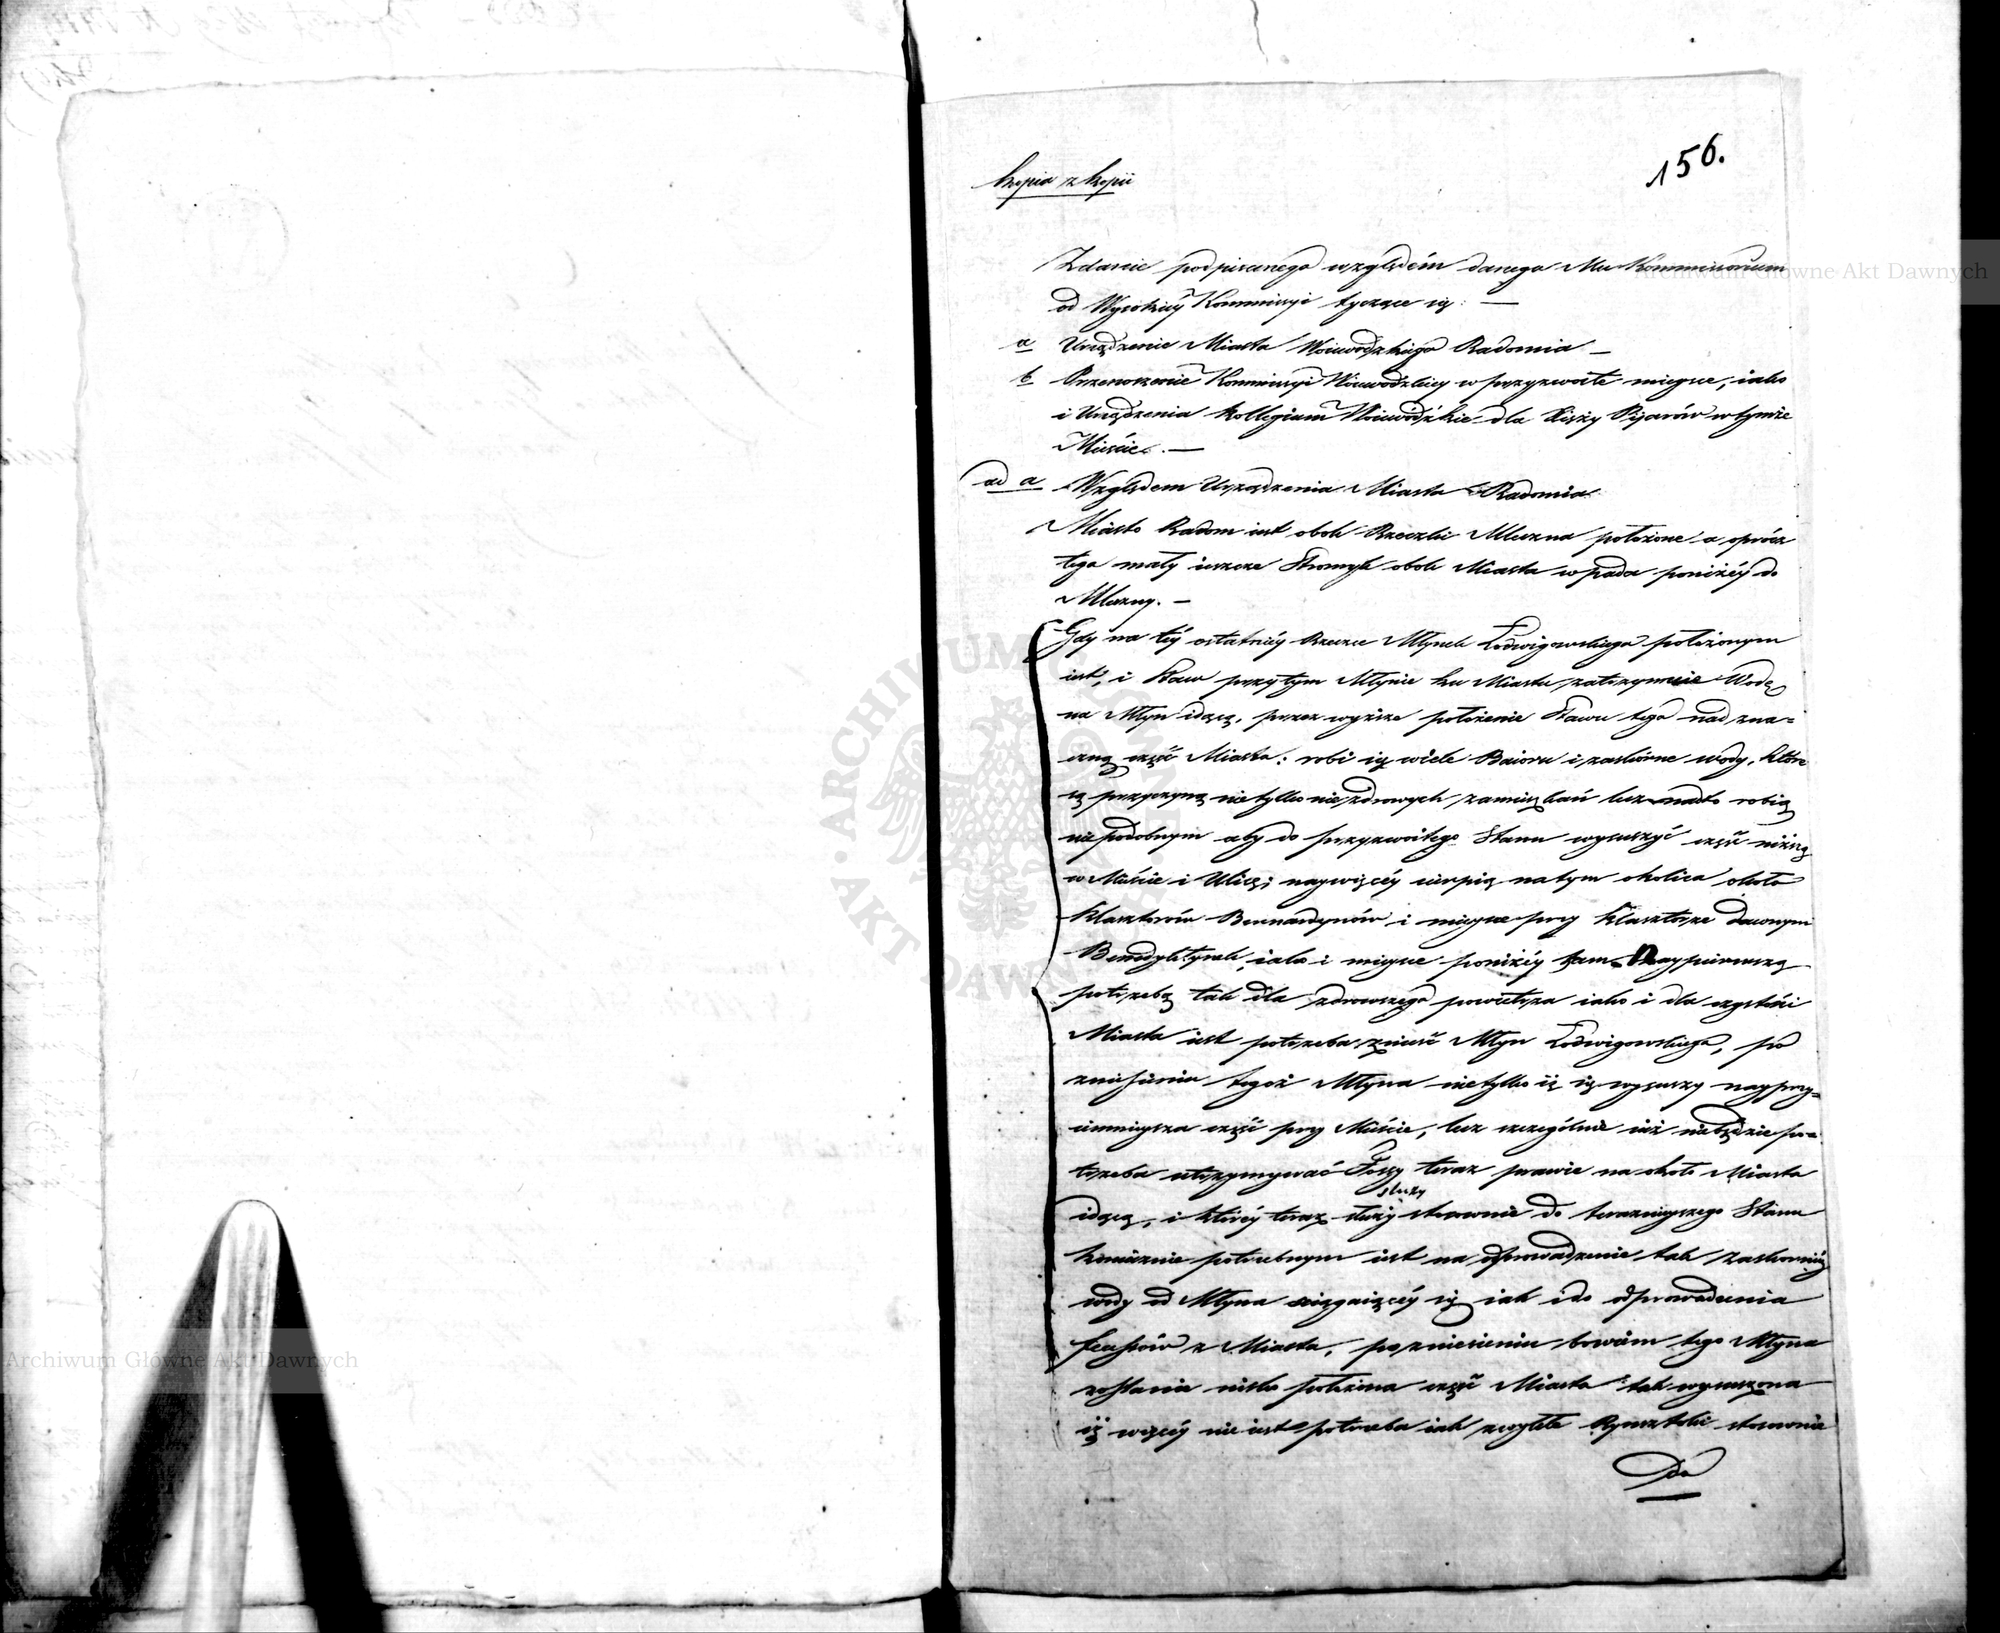 156.
Kopia z kopii
Zdanie podpisanego względem danego Mu Kommissorium
od Wysokiéy Kommissyi tyczące się: —
a Urządzenie Miasta Woiewódzkiego Radomia —
b Przenoszenie Kommissyi Woiewódzkiey w przyzwoite mieysce, iako
i Urządzenia Kollegium Woiewódzkie dla Xięży Pijarów w tymże
Mieście. —
ad a Względem Urządzenia Miasta Radomia
Miasto Radom iest obok Rzeczki Mleczna położone a oprócz
tego mały ieszcze Strumyk obok Miasta wpada poniżéy do
Mleczny. —
Gdy na téy ostatniéy Rzeczce Młynek Lodwigowskiego położonym
iest, i Staw przy tym Młynie ku Miastu zatrzymuie Wodę
na Młyn idącą, przez wyższe położenie Stawu tego nad zna=
czną część Miasta: robi się wiele Baiora i zaskórne wody, które
są przyczyną nie tylko niezdrowych zamieszkań lecz nadto robią
niepodobnym aby do przyzwoitego Stanu wysuszyć część niższą
w Mieście i Ulicę; naywięcéy cierpią na tym okolica około
Klasztorów Bernardynów i mieysce przy Klasztorze dawnym
Benedyktynek, iako i mieysce poniżéy tam. Naypierwszą
potrzebą tak dla zdrowszego powietrza iako i dla czystości
Miasta iest potrzeba znieść Młyn Lodwigowskiego, po
zniesieniu tegoż Młyna nie tylko iż się wysuszy nayprzy=
iemnieysza część przy Mieście, lecz szczególnie iuż nie będzie po=
trzeba utrzymywać Fossy teraz prawie na około Miasta
służy
idącą, i któréy teraz służy stosownie do teraznieyszego Stanu
koniecznie potrzebnym iest na odprowadzenie tak zaskorniéy
wody od Młyna sciągaiącéy się iak i do odprowadzenia
sciekow z Miasta, po zniesieniu bowiem tego Młyna
zostanie nisko położona część Miasta tak wysuszona
iż więcéy nie iest potrzeba iak zwykłe Rynsztoki stosownie
Do
Archiwum Główne Akt Dawnych
Archiwum Główne Akt Dawnych
ARCHIWUM GŁÓWNE AKT DAWNYCH